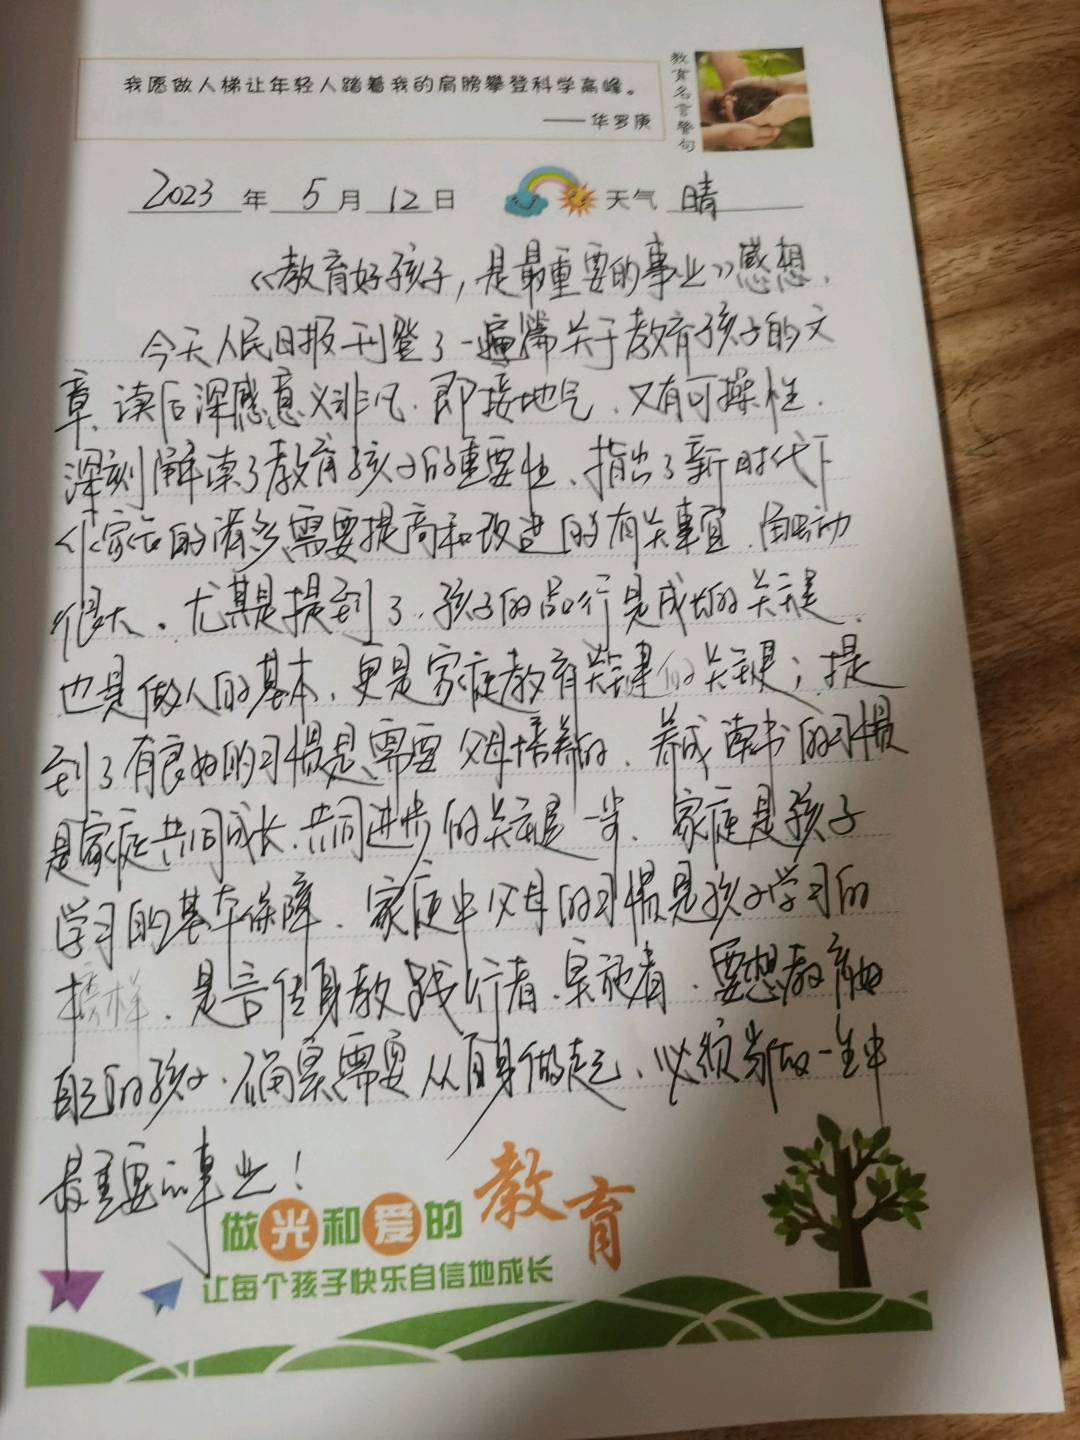 我愿做人梯让年轻人踏着我的肩膀攀登科学高峰。
——华罗庚
教育名言警句
2023年5月12日 天气 晴
《教育好孩子，是最重要的事业》感想.
今天人民日报刊登了一篇关于教育孩子的文
章、读后深感意义非凡.即接地气、又有可操性.
深刻解读了教育孩子的重要性、指出了新时代下
家长的诸多需要提高和改进的有关事宜、触动
很大。尤其是提到了、孩子的品行是成长的关键、
也是做人的基本、更是家庭教育关键的关键；提
到了有良好的习惯是需要父母培养的、养成读书的习惯
是家庭共同成长、共同进步的关键一步、家庭是孩子
学习的基本保障、家庭中父母的习惯是孩子学习的
榜样、是言传身教践行者、实施者、要想教育好
自己的孩子、确实需要从自身做起、必须当做一生中
最重要的事业！
做光和爱的教育
让每个孩子快乐自信地成长